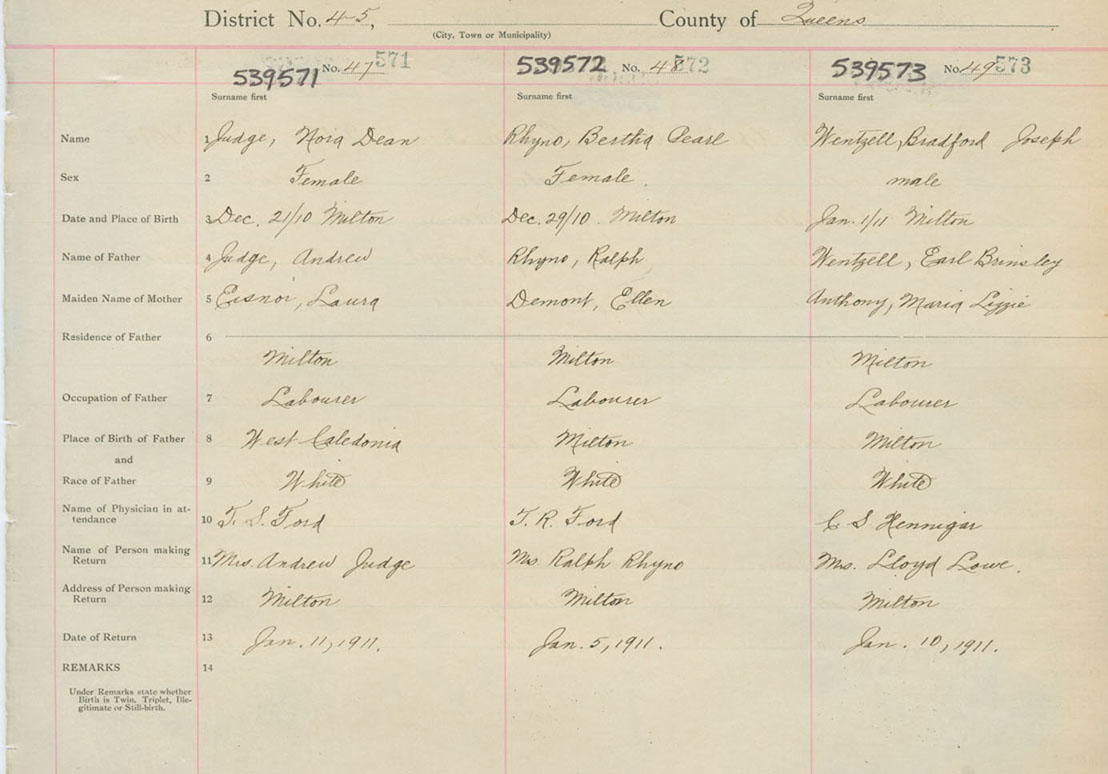 District No. 45, County of Queens
(City, Town or Municipality)
539571 No. 47 571 539572 No. 48 572 539573 No. 49 573
Surname first Surname first Surname first
Name 1 Judge, Nora Dean Rhyno, Bertha Pearl Wentzell, Bradford Joseph
Sex 2 Female Female. male
Date and Place of Birth 3 Dec. 21/10 Milton Dec. 29/10. Milton Jan. 1/11 Milton
Name of Father 4 Judge, Andrew Rhyno, Ralph Wentzell, Earl Brinsley
Maiden Name of Mother 5 Laura Demont, Ellen Anthony, Maria Lizzie
Residence of Father 6
Milton Milton Milton
Occupation of Father 7 Labourer Labourer Labourer
Place of Birth of Father 8 West Caledonia Milton Milton
and
Race of Father 9 White White White
Name of Physician in at-
tendance 10 T. S. Ford T. R. Ford C S Hennigar
Name of Person making
Return 11 Mrs. Andrew Judge Mrs Ralph Rhyno Mrs. Lloyd Lowe.
Address of Person making
Return 12 Milton Milton Milton
Date of Return 13 Jan. 11, 1911. Jan. 5, 1911. Jan. 10, 1911.
REMARKS 14
Under Remarks state whether
Birth is Twin, Triplet, Ille-
gitimate or Still-birth.